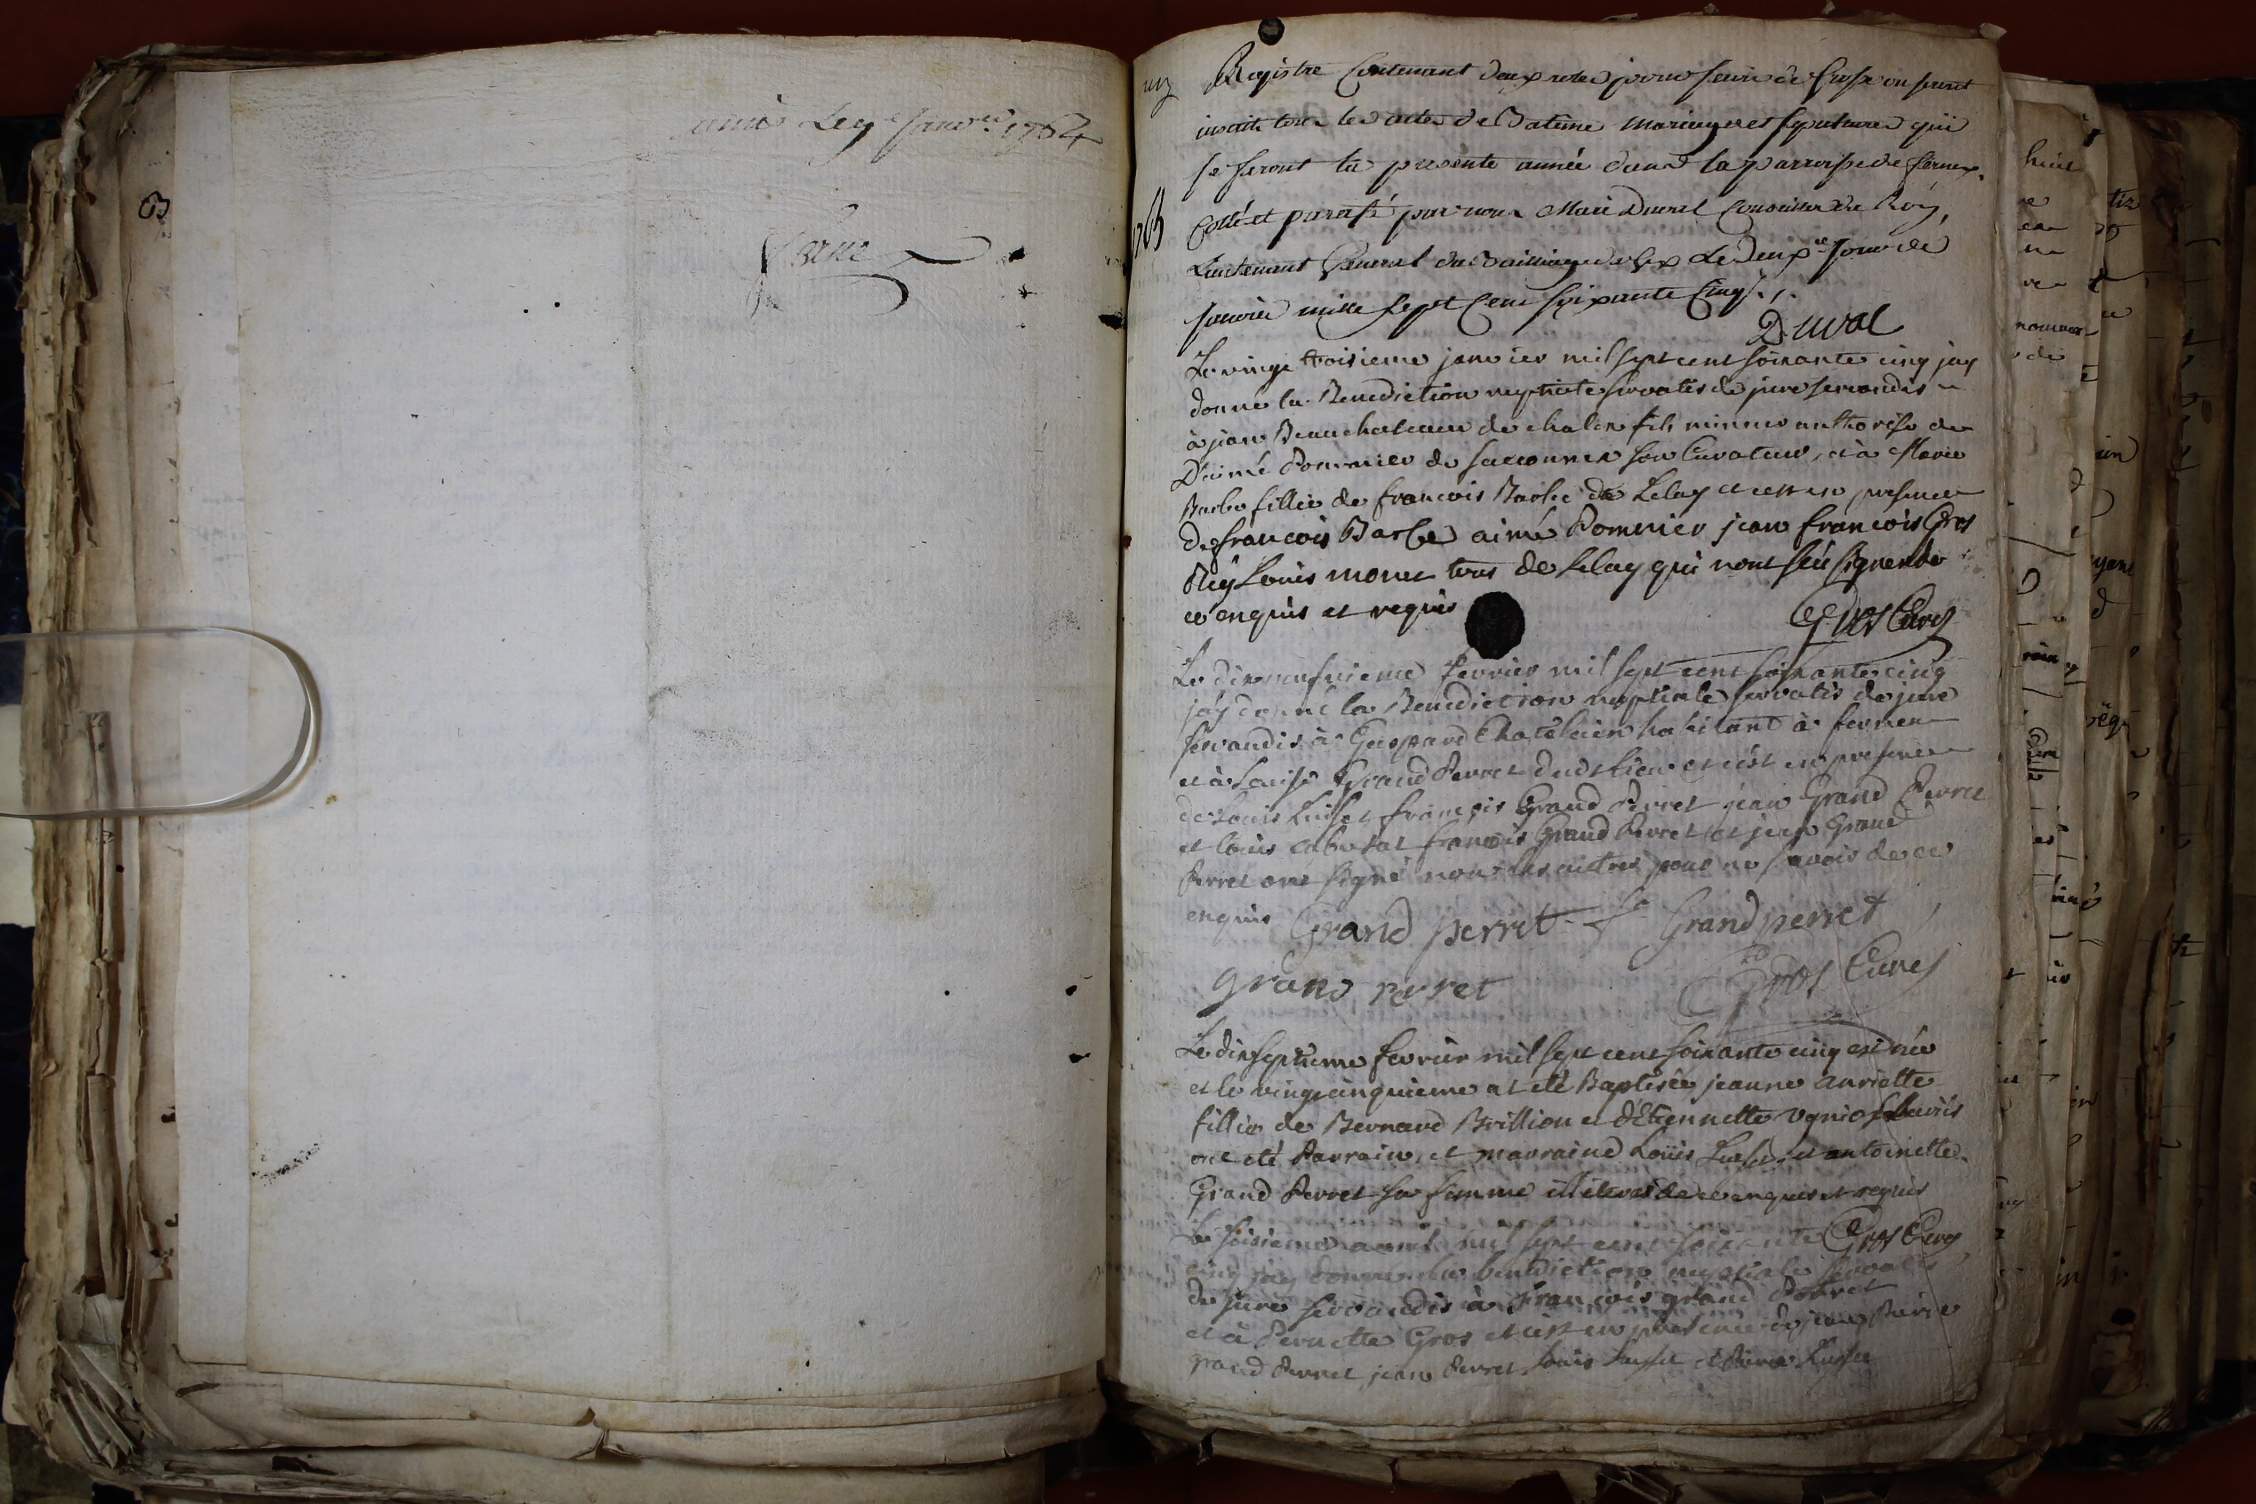 année Le 9e Janvier 1764
1765
Registre Contenant deux roles pour servir de où seront
inscrits tous les actes de Batême Mariages et Sepultures qui
se feront la presente année dans la parroisse de fernex,
Cotté et paraffé par nous Marc Duval Conseiller du Roy,
Lieutenant General du Bailliage de Gex Le deuxe Jour de
Janvier mille sept Cent soixante Cinq.
Duval
Le vingt troisieme janvier mil sept cent soixante cinq jay
donné la Benediction nuptiale servatis de jure servandis
à jean Beauchateau de fils mineur authorisé de
D'aimé Pommier de Sacconnex son Curateur, et à Marie
Barbe fillie de francois Barbe de Lelay et cest en presence
de francois Barbe aimé Pommier jean francois Gros
Rey Louis monet tous de Lelay qui n'ont sçû signer de
ce enquis et requis
Gros Curé
Le dixneufvieme fevrier mil sept cent soixante cinq
jay donné la Benediction nuptiale servatis de jure
servandis à Gaspard Chatelain habitant à fernex
et à Louise Grand Perret dudt lieu et c'est en presence
de Louis Luisset francois Grand Perret jean Grand Perret
et louis francois Grand Perret et jean Grand
Perret ont signé non les autres pour ne savoir de ce
enquis Grand perret fs Grand perret
grand perret Gros Curé
Le dixseptieme fevrier mil sept cent soixante cinq est née
et le vingtcinquieme a eté Baptisée jeanne auriette
fillie de Bernard Brillion et d'Etiennette mariés
ont eté Parrain et marraine Louis et antoinette
Grand Perret sa femme illiteras de ce enquis et requis
Gros Curé
Le seisieme avril mil sept cent soixante
cinq jay donné la benediction nuptiale servatis
de jure servandis à francois grand Perret
et à Pernette Gros et c'est en presence de jean Pierre
grand Perret jean Perret Louis et Pierre